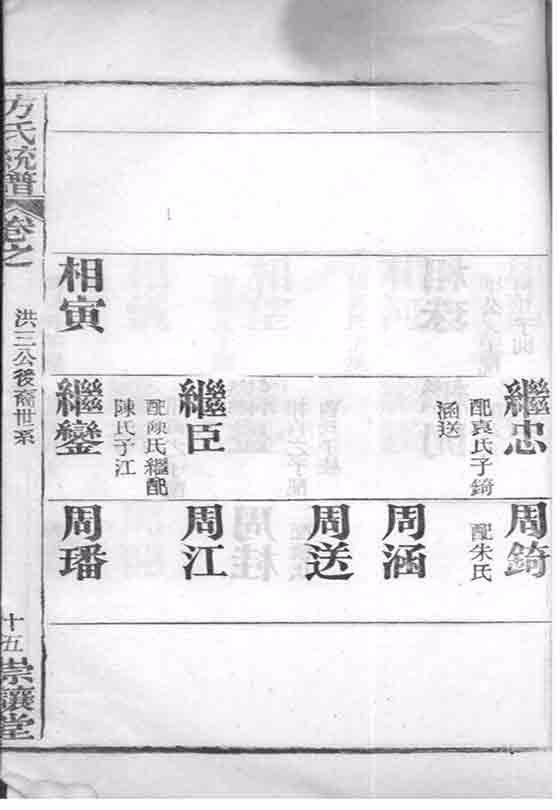 相寅
繼忠
配袁氏子錡
涵送
繼臣
配陳氏繼配
陳氏子江
繼鑾
周錡
配朱氏
周涵
周送
周江
周璠
方氏統譜
卷之
洪三公後裔世系
十五
崇讓堂